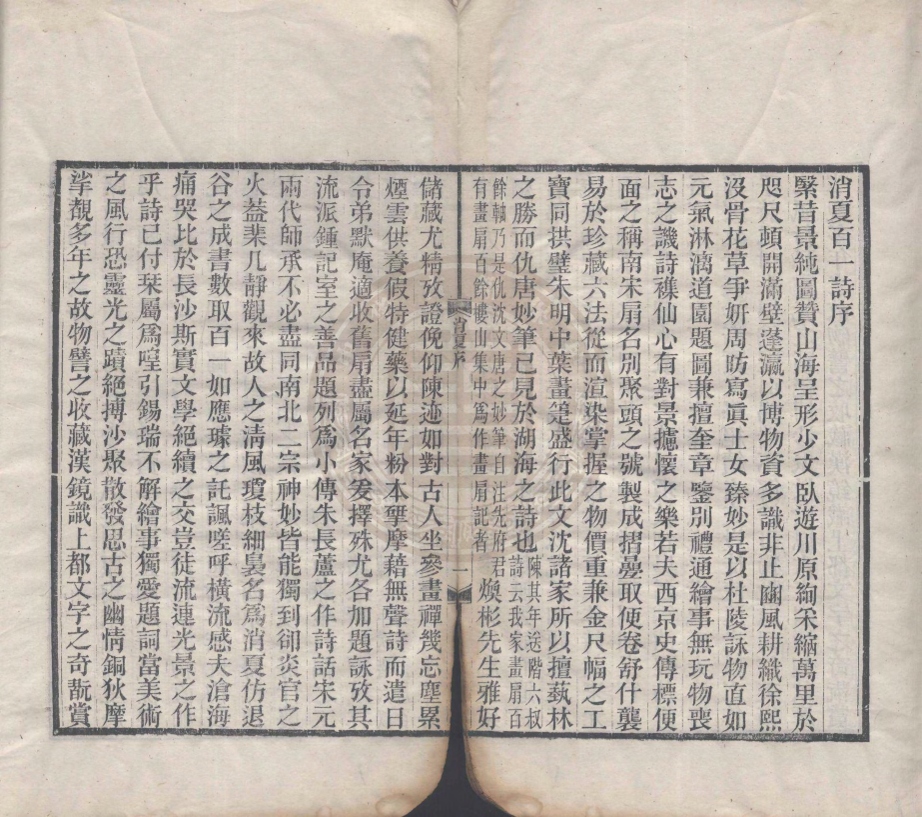 消夏百一詩序
繄昔景純圖贊山海呈形少文臥遊川原絢采縮萬里於
咫尺頓開滿壁蓬瀛以博物資多識非止豳風耕織徐熙
沒骨花草爭妍周昉寫眞士女臻妙是以杜陵詠物直如
元氣淋漓道園題圖兼擅奎章鑒別禮通繪事無玩物喪
志之譏詩襍仙心有對景攄懷之樂若夫西京史傳標便
面之稱南宋扇名別聚頭之號製成摺疊取便卷舒什襲
易於珍藏六法從而渲染掌握之物價重兼金尺幅之工
寶同拱璧朱明中葉畫箑盛行此文沈諸家所以擅蓺林
之勝而仇唐妙筆已見於湖海之詩也陳其年送階六叔詩云我家畫扇百
餘軸乃是仇沈文唐之妙筆自注先府君有畫扇百餘婁山集中爲作畫扇記者煥彬先生雅好
消夏序
一
儲藏尤精攷證俛仰陳迹如對古人坐參畫禪幾忘塵累
煙雲供養假特健藥以延年粉本揅摩藉無聲詩而遣日
令弟默庵適收舊扇盡屬名家爰擇殊尤各加題詠攷其
流派鍾記室之善品題列爲小傳朱長蘆之作詩話宋元
兩代師承不必盡同南北二宗神妙皆能獨到卻炎官之
火葢棐几靜觀來故人之淸風瓊枝細裊名爲消夏仿退
谷之成書數取百一如應璩之託諷嗟呼橫流感夫滄海
痛哭比於長沙斯實文學絕續之交豈徒流連光景之作
乎詩已付栞屬爲喤引錫瑞不解繪事獨愛題詞當美術
之風行恐靈光之蹟絕搏沙聚散發思古之幽情銅狄摩
挲覩多年之故物譬之收藏漢鏡識上都文字之奇翫賞